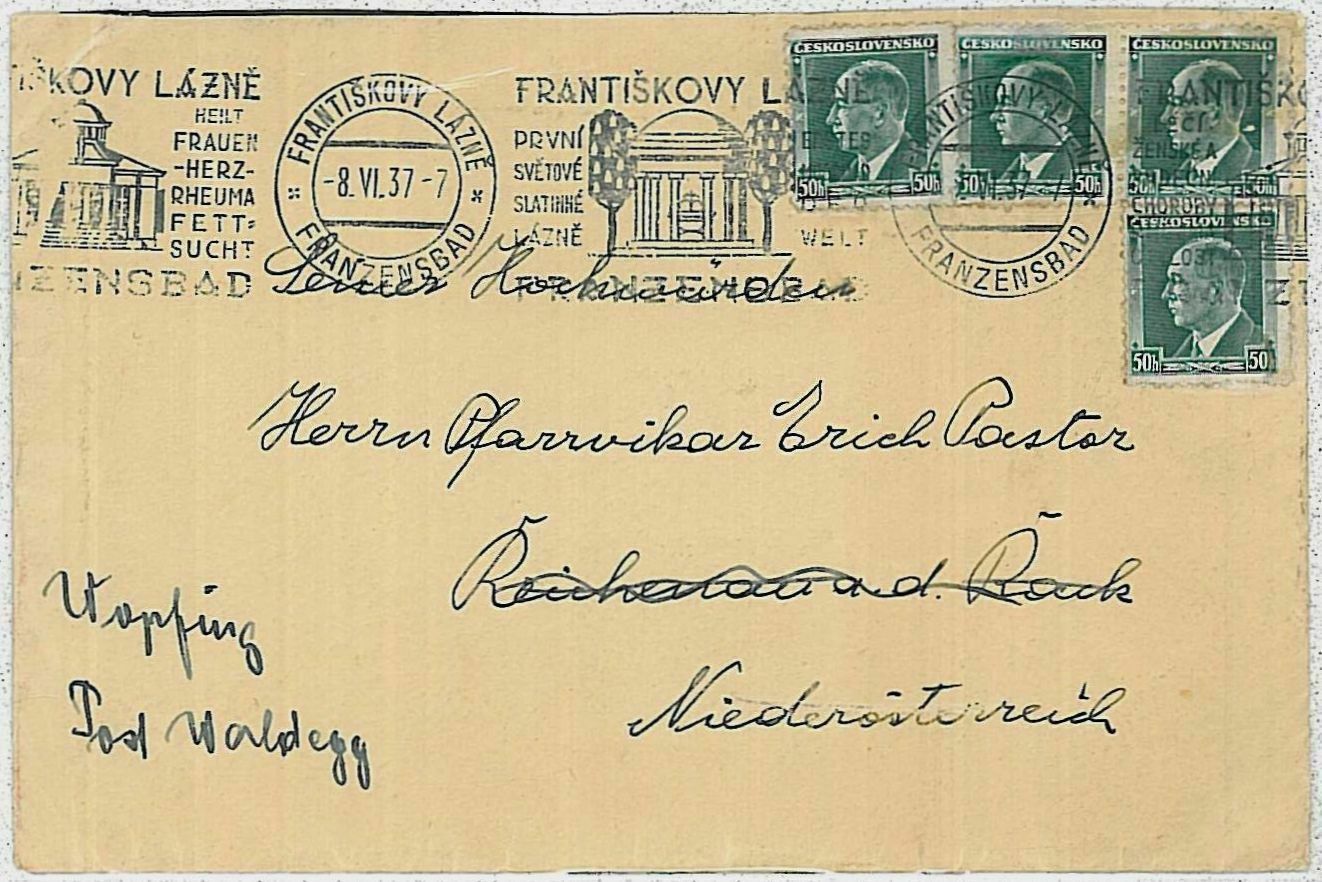 IŠKOVY LÁZNĚ
HEILT
FRAUEN
-HERZ-
RHEUMA
FETT=
SUCHT
NZENSBAD
FRANTIŠKOVY LÁZNĚ
-8.VI.37-7
FRANZENSBAD
FRANTIŠKOVY LÁZNĚ
PRVNÍ
SVĚTOVÉ
SLATINNÉ
LÁZNĚ
WELT
FRANZENSBAD
ČESKOSLOVENSKO
50h 50h
ČESKOSLOVENSKO
50h 50h
ČESKOSLOVENSKO
50h 50h
ČESKOSLOVENSKO
50h 50
FRANTIŠKOVY LÁZNĚ
VI.37-7
FRANZENSBAD
FRANTIŠKO
LÉČÍ
ŽENSKÉ A
CHOROBY
Seiner Hochwürden
Herrn Pfarrvikar Erich Pastor
Reichenau a. d. Rax
Niederösterreich
Wopfing
Post Waldegg